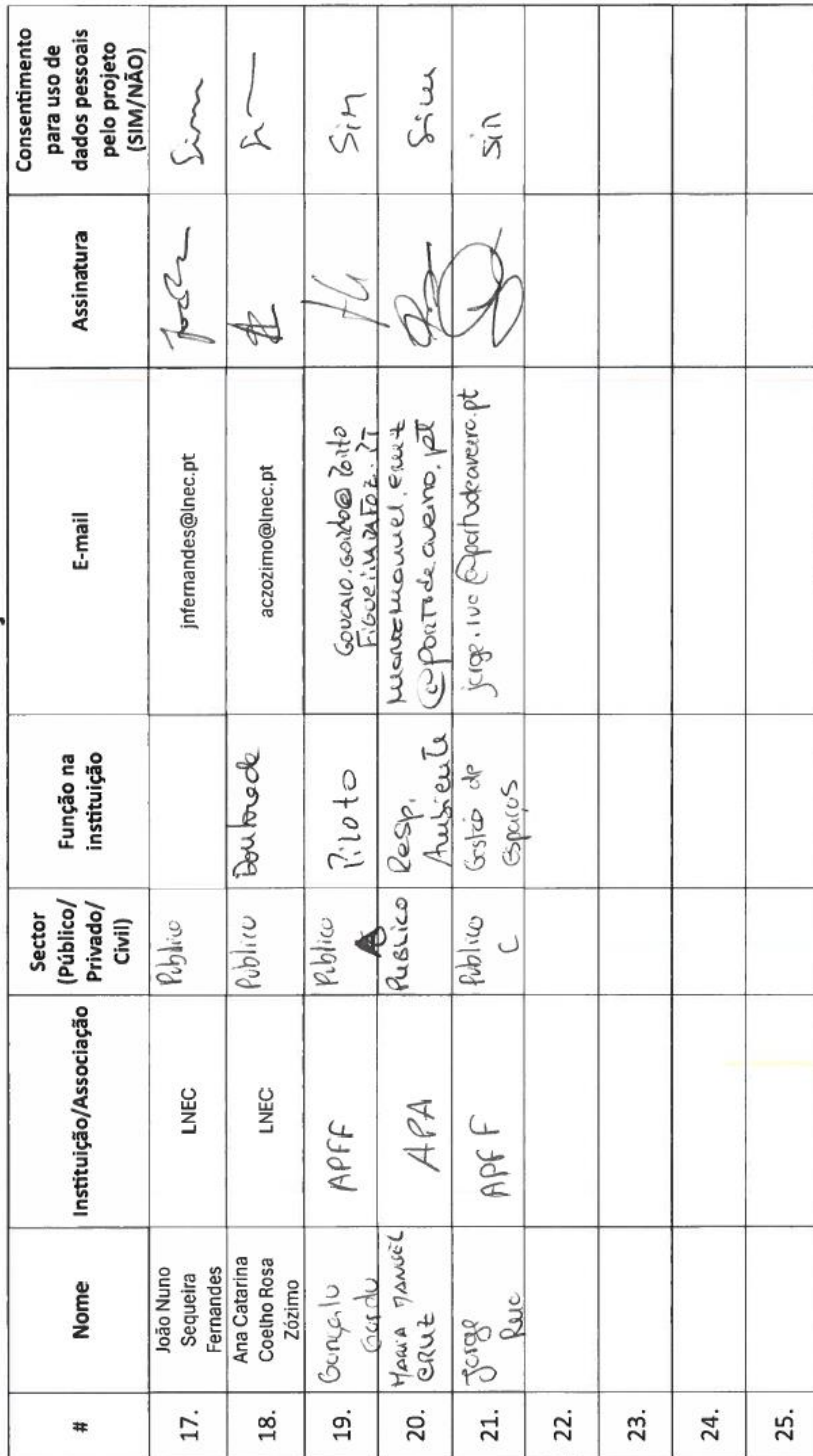 #
Nome
Instituição/Associação
Sector
(Público/
Privado/
Civil)
Função na
instituição
E-mail
Assinatura
Consentimento
para uso de
dados pessoais
pelo projeto
(SIM/NÃO)
17.
João Nuno
Sequeira
Fernandes
LNEC
Público
jnfernandes@lnec.pt
Sim
18.
Ana Catarina
Coelho Rosa
Zózimo
LNEC
Público
aczozimo@lnec.pt
19.
Gonçalo
APFF
Público
Piloto
Sim
20.
MARIA MANUEL
CRUZ
APA
Público
Resp.
Ambiente
@portodeaveiro.pt
Sim
21.
Jorge
APFF
Público
C
Gestão de
Espaços
@portodeaveiro.pt
Sim
22.
23.
24.
25.